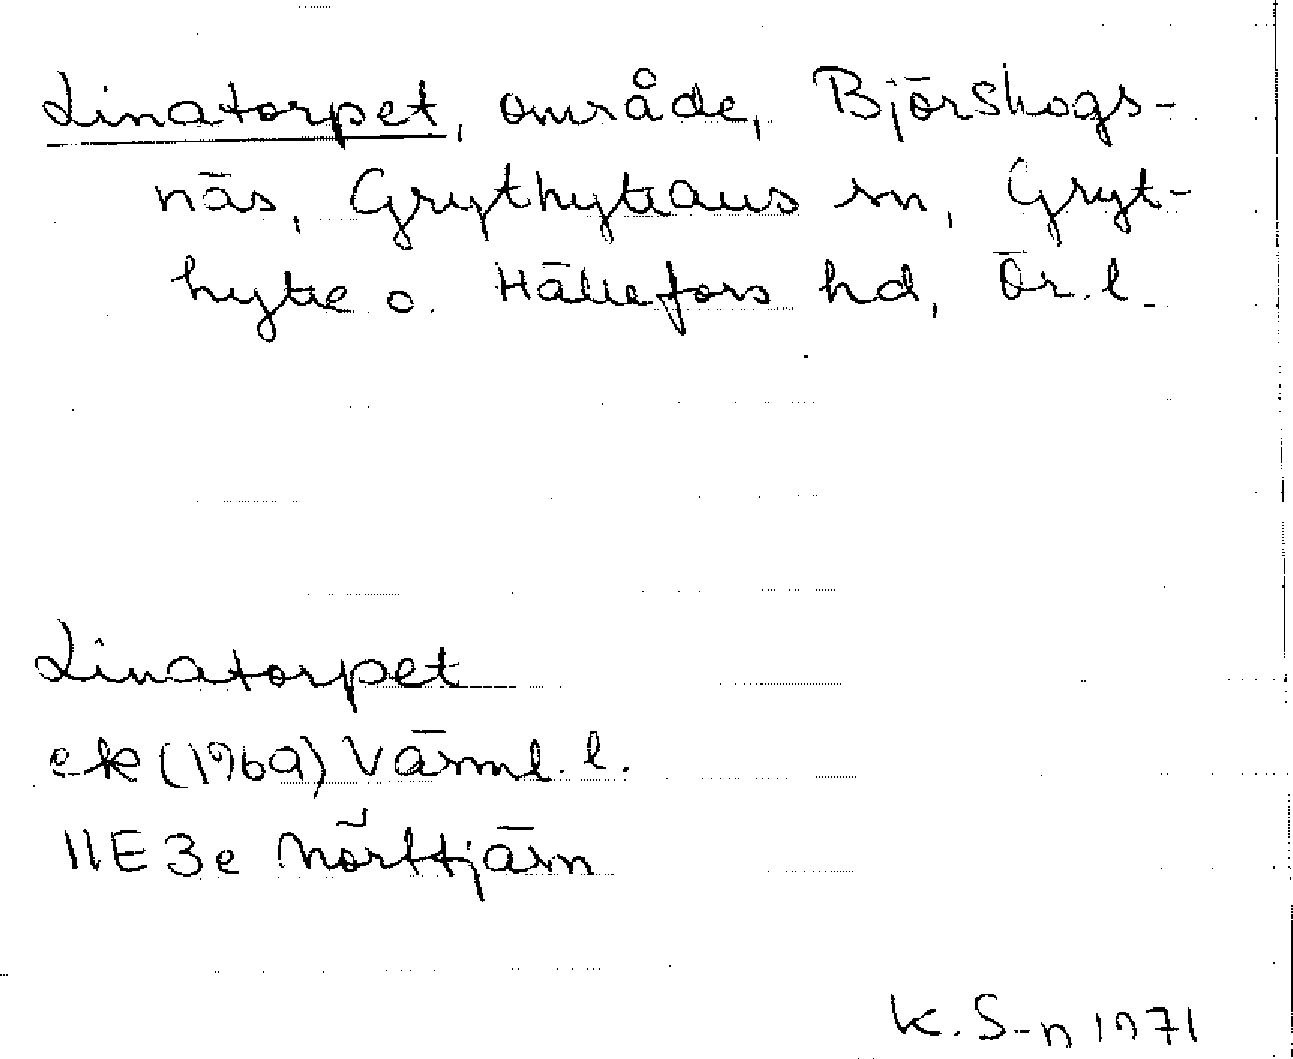 Linatorpet, område, Björskogs-
näs, Grythyttans sn, Gryt-
hytte o. Hällefors hd, Ör. l.
Linatorpet
ek (1969) Värml. l.
11E 3e Mörttjärn
K. S-n 1971